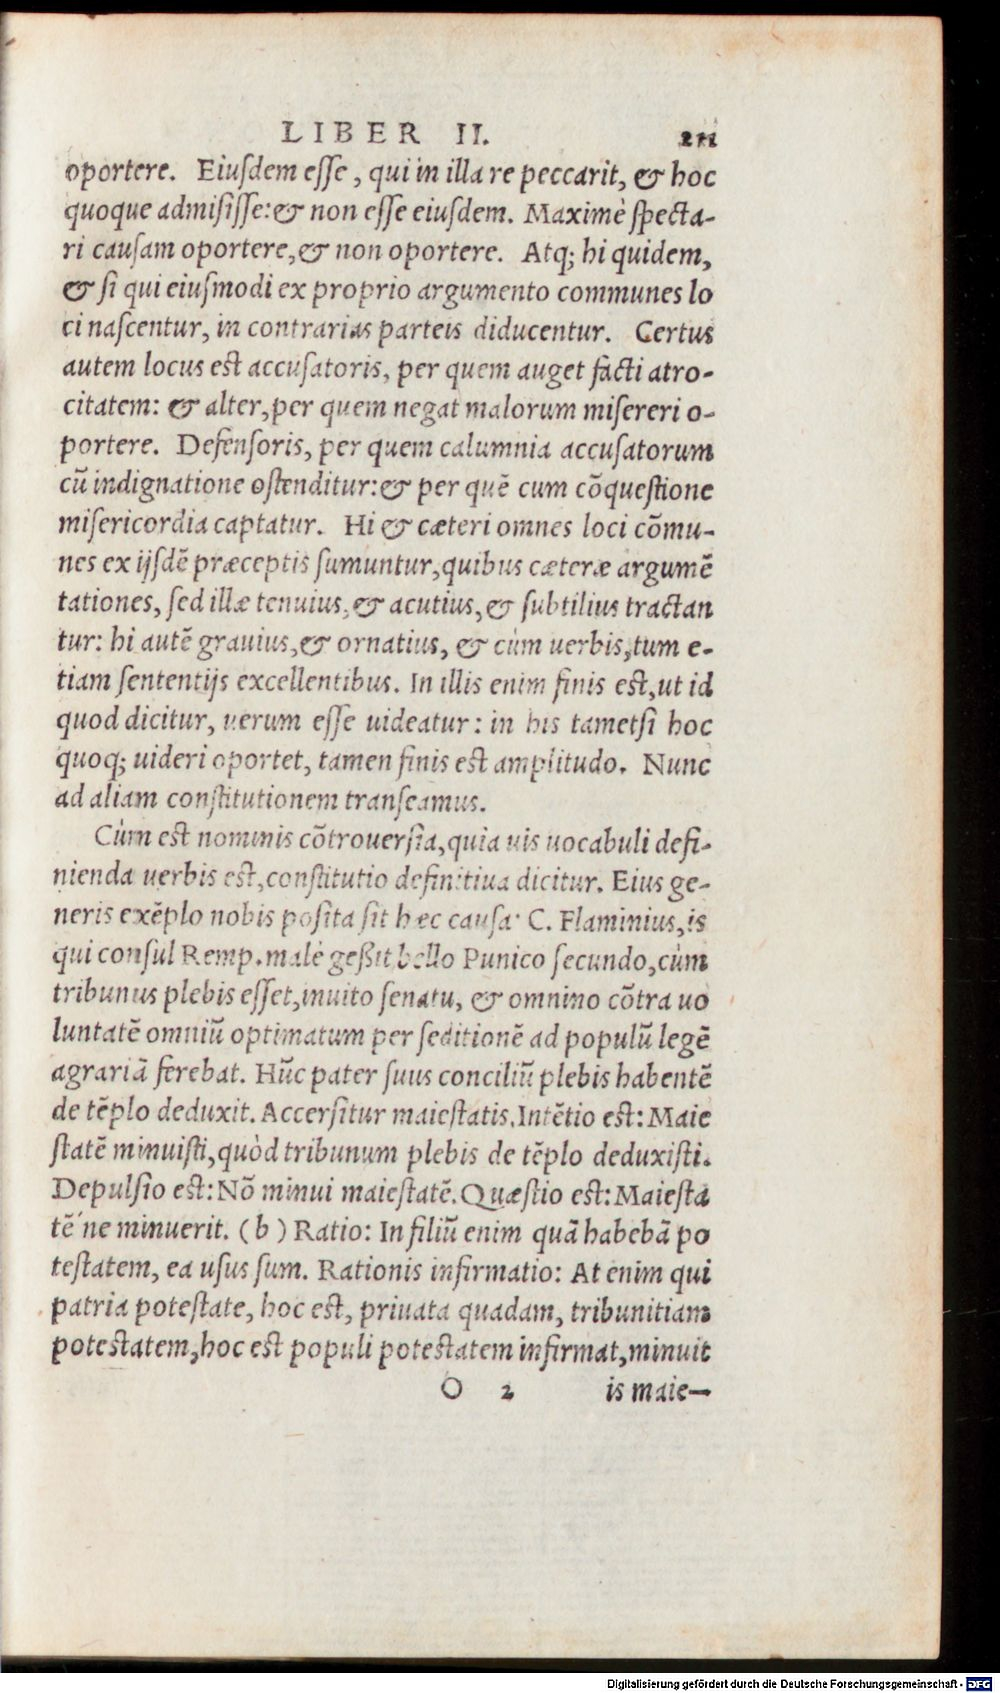 LIBER II. 211
oportere. Eiuſdem eſſe, qui in illa re peccarit, & hoc
quoque admiſiſſe: & non eſſe eiuſdem. Maximè ſpecta-
ri cauſam oportere, & non oportere. Atq; hi quidem,
& ſi qui eiuſmodi ex proprio argumento communes lo
ci naſcentur, in contrarias parteis diducentur. Certus
autem locus est accuſatoris, per quem auget facti atro-
citatem: & alter, per quem negat malorum miſereri o-
portere. Defenſoris, per quem calumnia accuſatorum
cū indignatione oſtenditur: & per quē cum cōqueſtione
miſericordia captatur. Hi & cæteri omnes loci cōmu-
nes ex ijſdē præceptis ſumuntur, quibus cæteræ argumē
tationes, ſed illæ tenuius, & acutius, & ſubtilius tractan
tur: hi autē grauius, & ornatius, & cùm uerbis, tum e-
tiam ſententijs excellentibus. In illis enim finis est, ut id
quod dicitur, uerum eſſe uideatur: in his tametſi hoc
quoq; uideri oportet, tamen finis est amplitudo. Nunc
ad aliam conſtitutionem tranſeamus.
Cùm est nominis cōtrouerſia, quia uis uocabuli defi-
nienda uerbis est, conſtitutio definitiua dicitur. Eius ge-
neris exēplo nobis poſita ſit hæc cauſa: C. Flaminius, is
qui conſul Remp. malè geßit bello Punico ſecundo, cùm
tribunus plebis eſſet, inuito ſenatu, & omnino cōtra uo
luntatē omniū optimatum per ſeditionē ad populū legē
agrariā ferebat. Hūc pater ſuus conciliū plebis habentē
de tēplo deduxit. Accerſitur maieſtatis. Intētio est: Maie
ſtatē minuiſti, quòd tribunum plebis de tēplo deduxiſti.
Depulſio est: Nō minui maieſtatē. Quæſtio est: Maieſta
tē ne minuerit. (b) Ratio: In filiū enim quā habebā po
teſtatem, ea uſus ſum. Rationis infirmatio: At enim qui
patria poteſtate, hoc est, priuata quadam, tribunitiam
poteſtatem, hoc est populi poteſtatem infirmat, minuit
O 2 is maie-
Digitalisierung gefördert durch die Deutsche Forschungsgemeinschaft - DFG